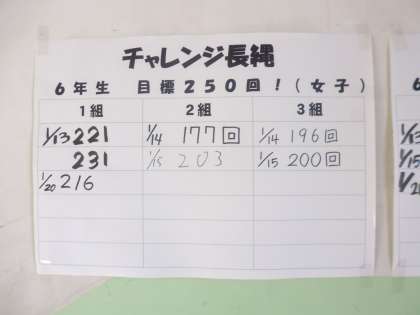 チャレンジ長縄
6年生 目標250回!(女子)
1組 2組 3組
1/13 221 1/14 177回 1/14 196回
231 1/15 203 1/15 200回
1/20 216
6
1/13
1/15